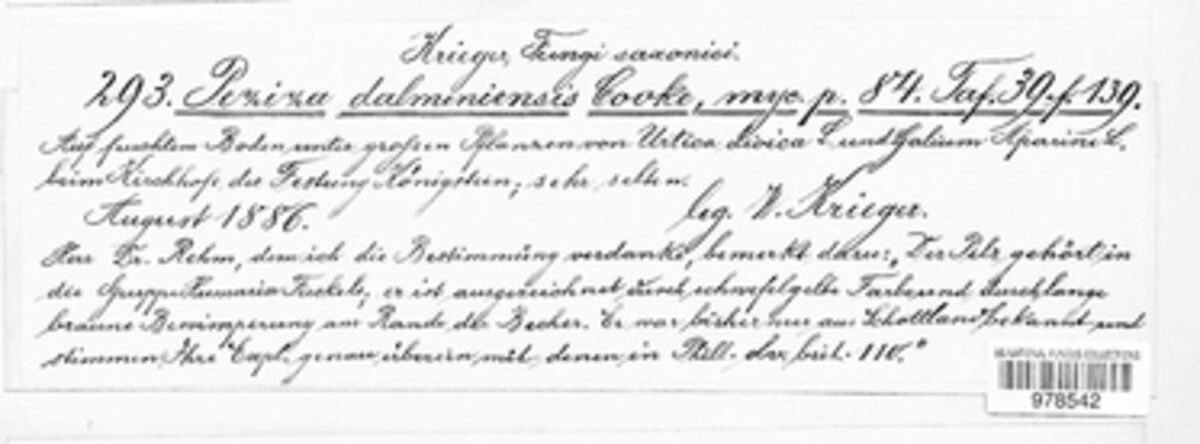 Krieger, Fungi saxonici.
293. Peziza dalminiensis Cooke, myc. p. 84. Taf. 39. f. 139.
Auf feuchtem Boden unter grossen Pflanzen von Urtica dioica L. und Galium Aparine L.
beim Kirchhofe der Festung Königstein; sehr selten.
August 1886.
leg. W. Krieger.
Herr Dr. Rehm, dem ich die Bestimmung verdanke, bemerkt dazu: „Der Pilz gehört in
die Gruppe Humaria Fuckels, er ist ausgezeichnet durch schwefelgelbe Farbe und durch lange
braune Bewimperung am Rande der Becher. Er war bisher nur aus Schottland bekannt und
stimmen Ihre Expl. genau überein mit denen in Phill. brit. 110."
US NATIONAL FUNGUS COLLECTIONS
978542